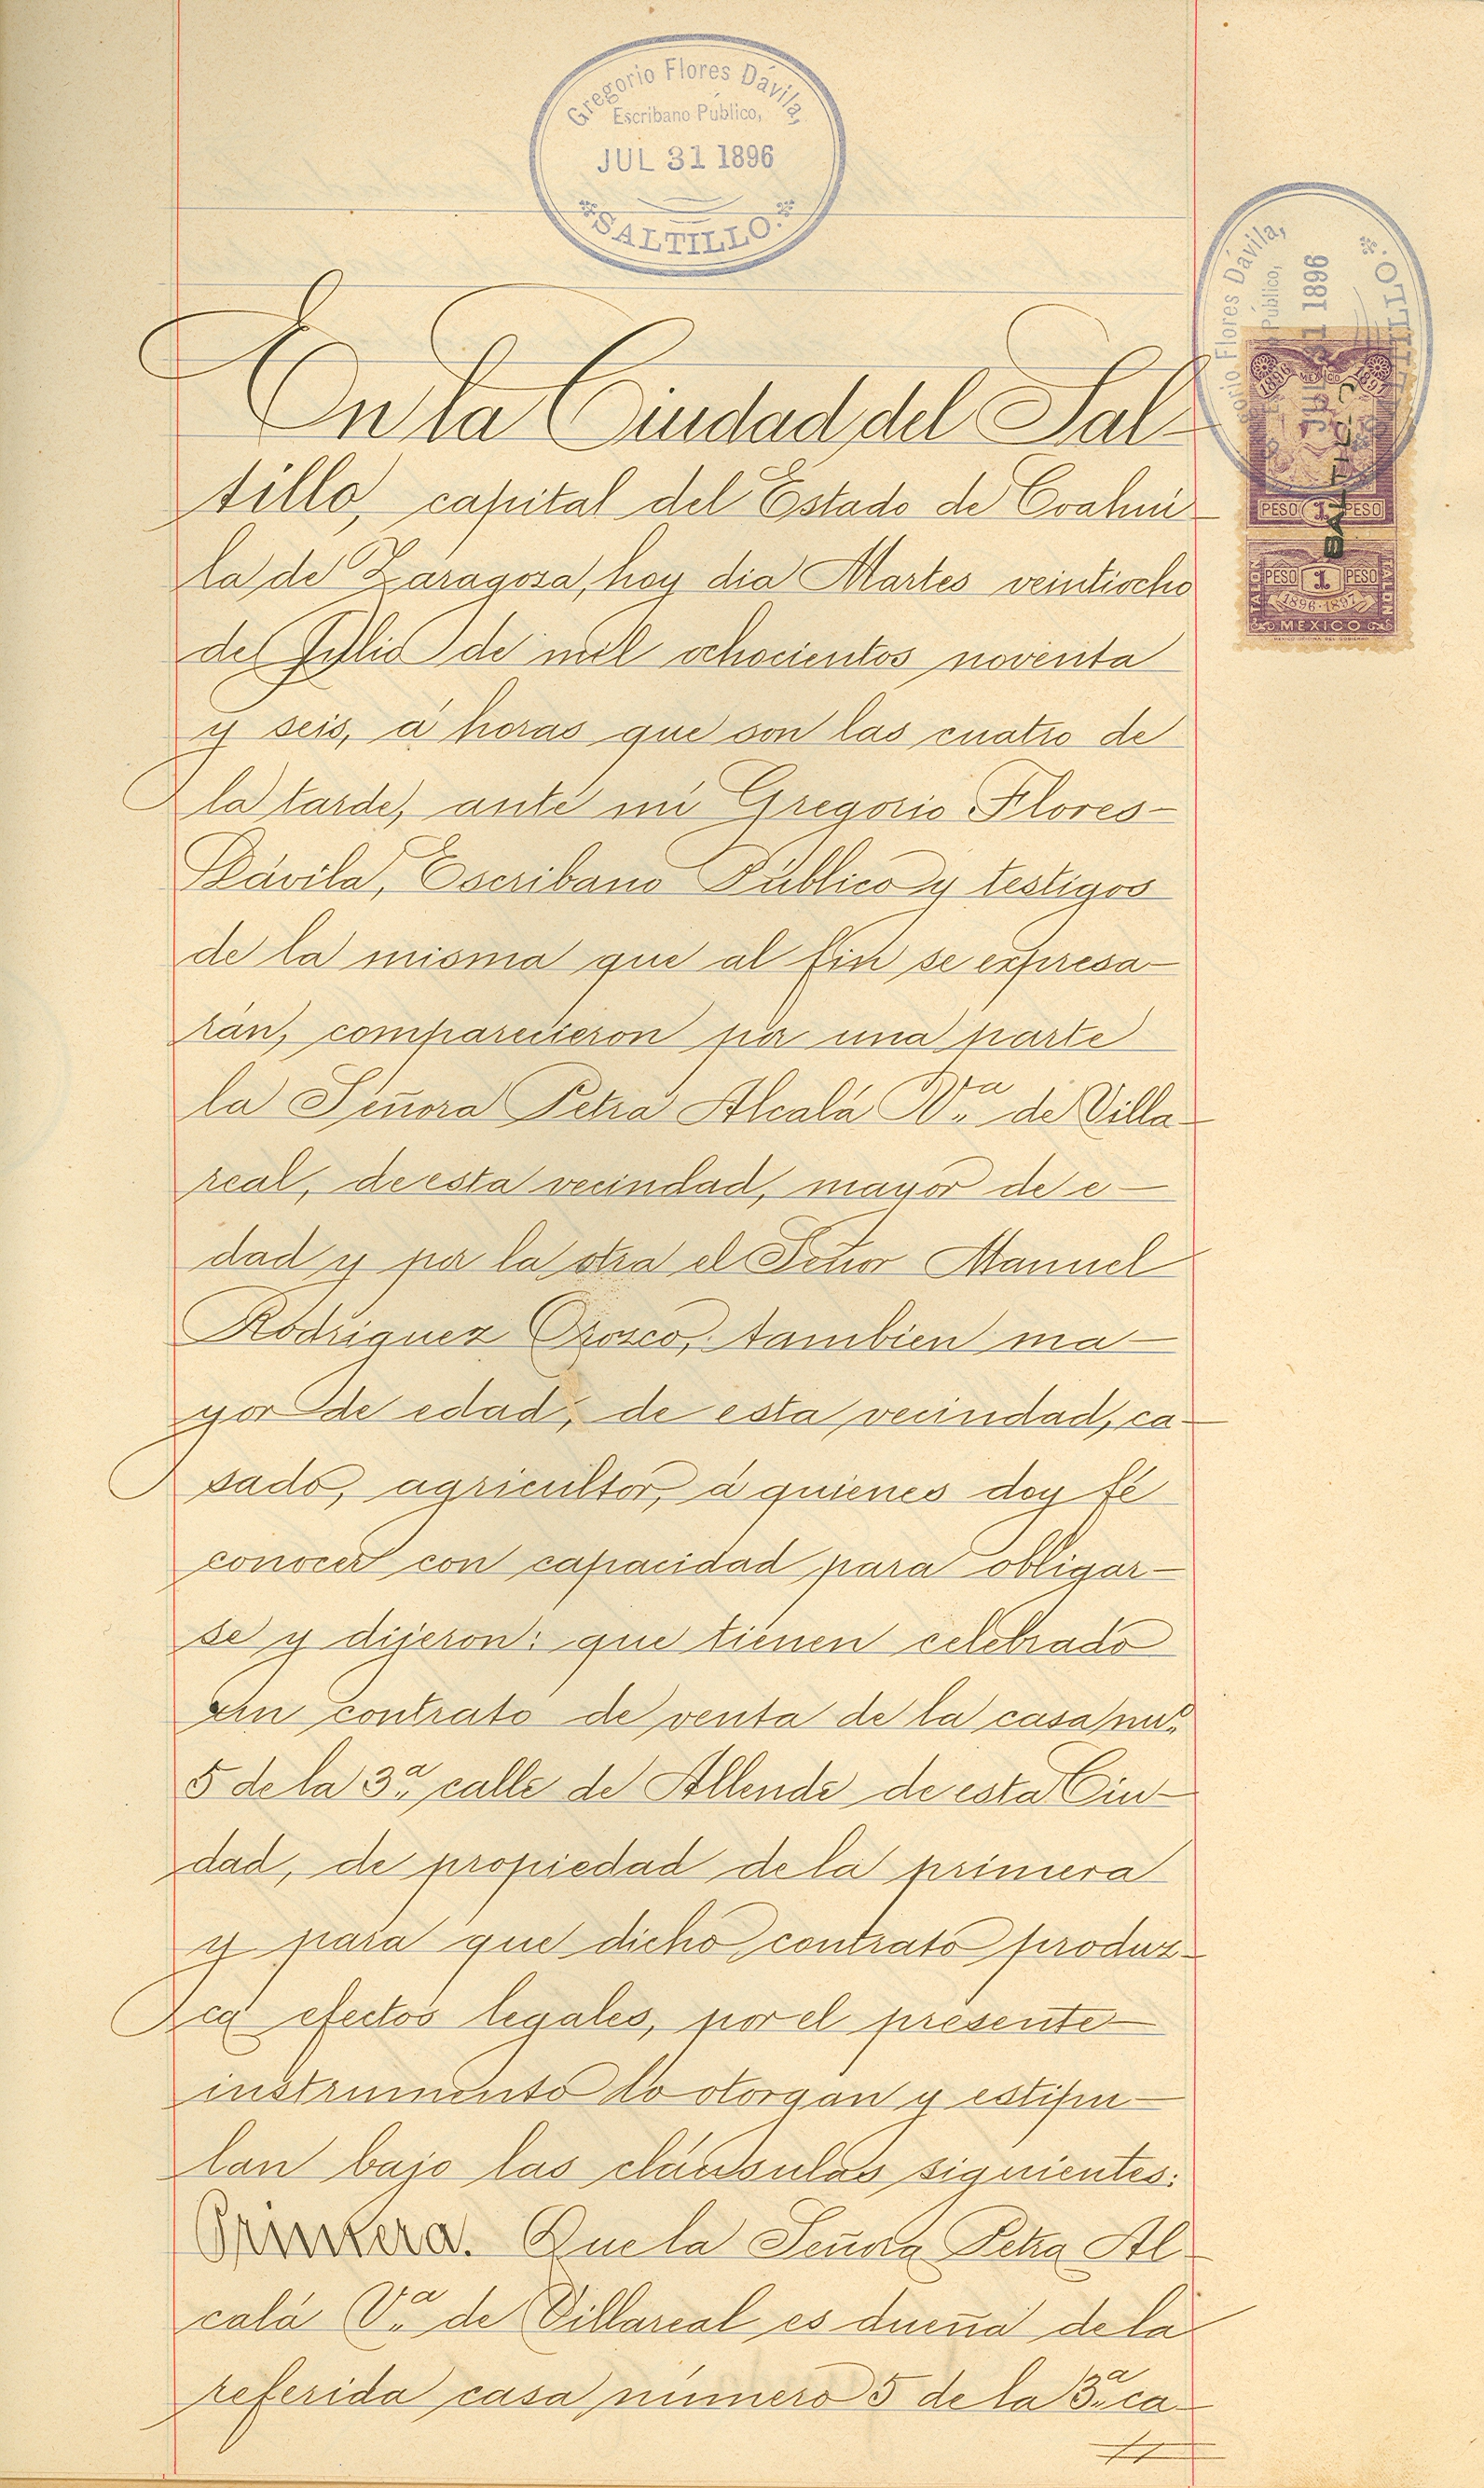 Gregorio Flores Dávila,
Escribano Público,
JUL 31 1896
SALTILLO.
En la Ciudad del Sal-
tillo, capital del Estado de Coahui-
la de Zaragosa, hoy dia Martes veintiocho
de Julio de mil ochocientos noventa
y seis, á horas que son las cuatro de
la tarde, ante mi Gregorio Flores-
Dávila, Escribano Público y testigos
de la misma que al fin se expresa-
rán, comparecieron por una parte
la Señora Petra Alcalá V.ª de Villa-
real, de esta vecindad, mayor de e-
dad y por la otra el Señor Manuel
Rodriguez Orosco, tambien ma-
yor de edad, de esta vecindad, ca-
sado, agricultor, á quienes doy fé
conocer con capacidad para obligar-
se y dijeron: que tienen celebrado
un contrato de venta de la casa nu.º
5 de la 3.ª calle de Allende de esta Ciu-
dad, de propiedad de la primera
y para que dicho contrato produz-
ca efectos legales, por el presente-
instrumento lo otorgan y estipu-
lan bajo las cláusulas siguientes:
Primera. Que la Señora Petra Al-
calá V.ª de Villareal es dueña de la
referida casa número 5 de la 3.ª ca-
orio Flores Dávila,
Público,
1 1896
TILLO.
1896 MEXICO 1897
PESO 1 PESO
SALTILLO
PESO 1 PESO
TALON 1896-1897 TALON
MEXICO